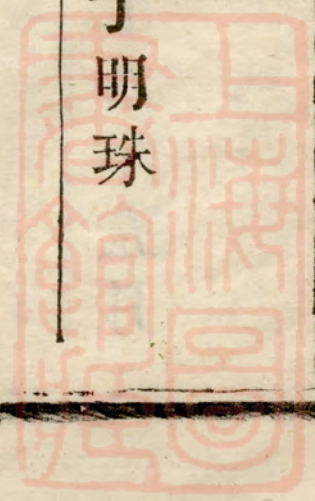 明珠
上海圖
書館藏